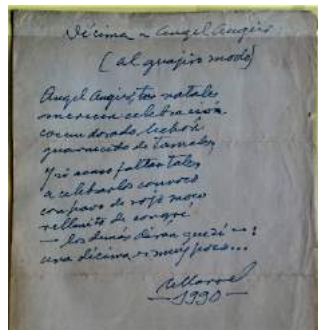 Décima a Angel Augier
(al guajiro modo)
Angel Augier, tus natales
merecen celebración
con un dorado lechón
guarnecido de tamales
Y si acaso faltan tales
a celebrarlos convoco
con pavo de rojo moco
rellenito de congrí
— los demás dirán que sí — :
una décima es muy poco...
1990